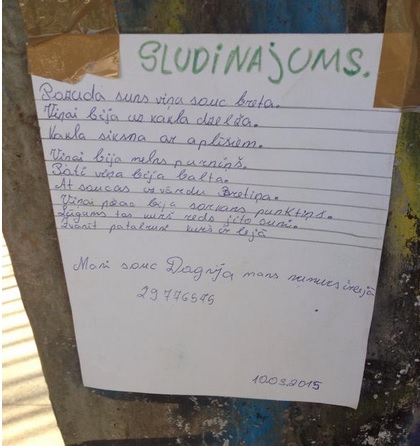 SLUDINAJUMS.
Pazuda suns viņa sauc breta.
Viņai bija uz kakla dzelža.
Kakla siksna ar aplīšiem.
Viņai bija melns purniņš.
Pati viņa bija balta.
At saucas uz vārdu Bretiņa.
Viņai bija sarkans punktiņš.
Lūgums tas kurš redz šito suni.
Zvanīt pa tālruni kurš ir lejā
Mani sauc Dagnija mans numurs ir lejā
29776575
10.09.2015